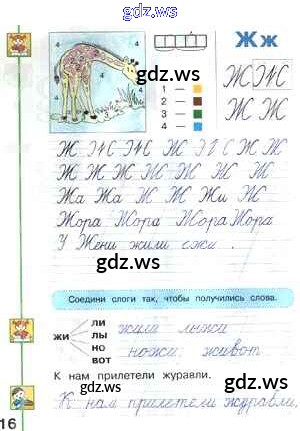 gdz.ws
Ж ж
4 4
4
gdz.ws
1 —
2 —
3 —
4 —
Ж Ж
Ж Ж
Ж Ж Ж Ж Ж Ж Ж
Ж Ж Ж Ж Ж Ж Ж Ж
Жа Жа Ж Ж Жи Ж
Жора Жора Жора Жора
У Жени жили ежи.
gdz.ws
Соедини слоги так, чтобы получились слова.
жи
ли жили лыжи
лы
но ножи, живот
вот
К нам прилетели журавли.
gdz.ws
К нам прилетели журавли.
16
gdz.ws